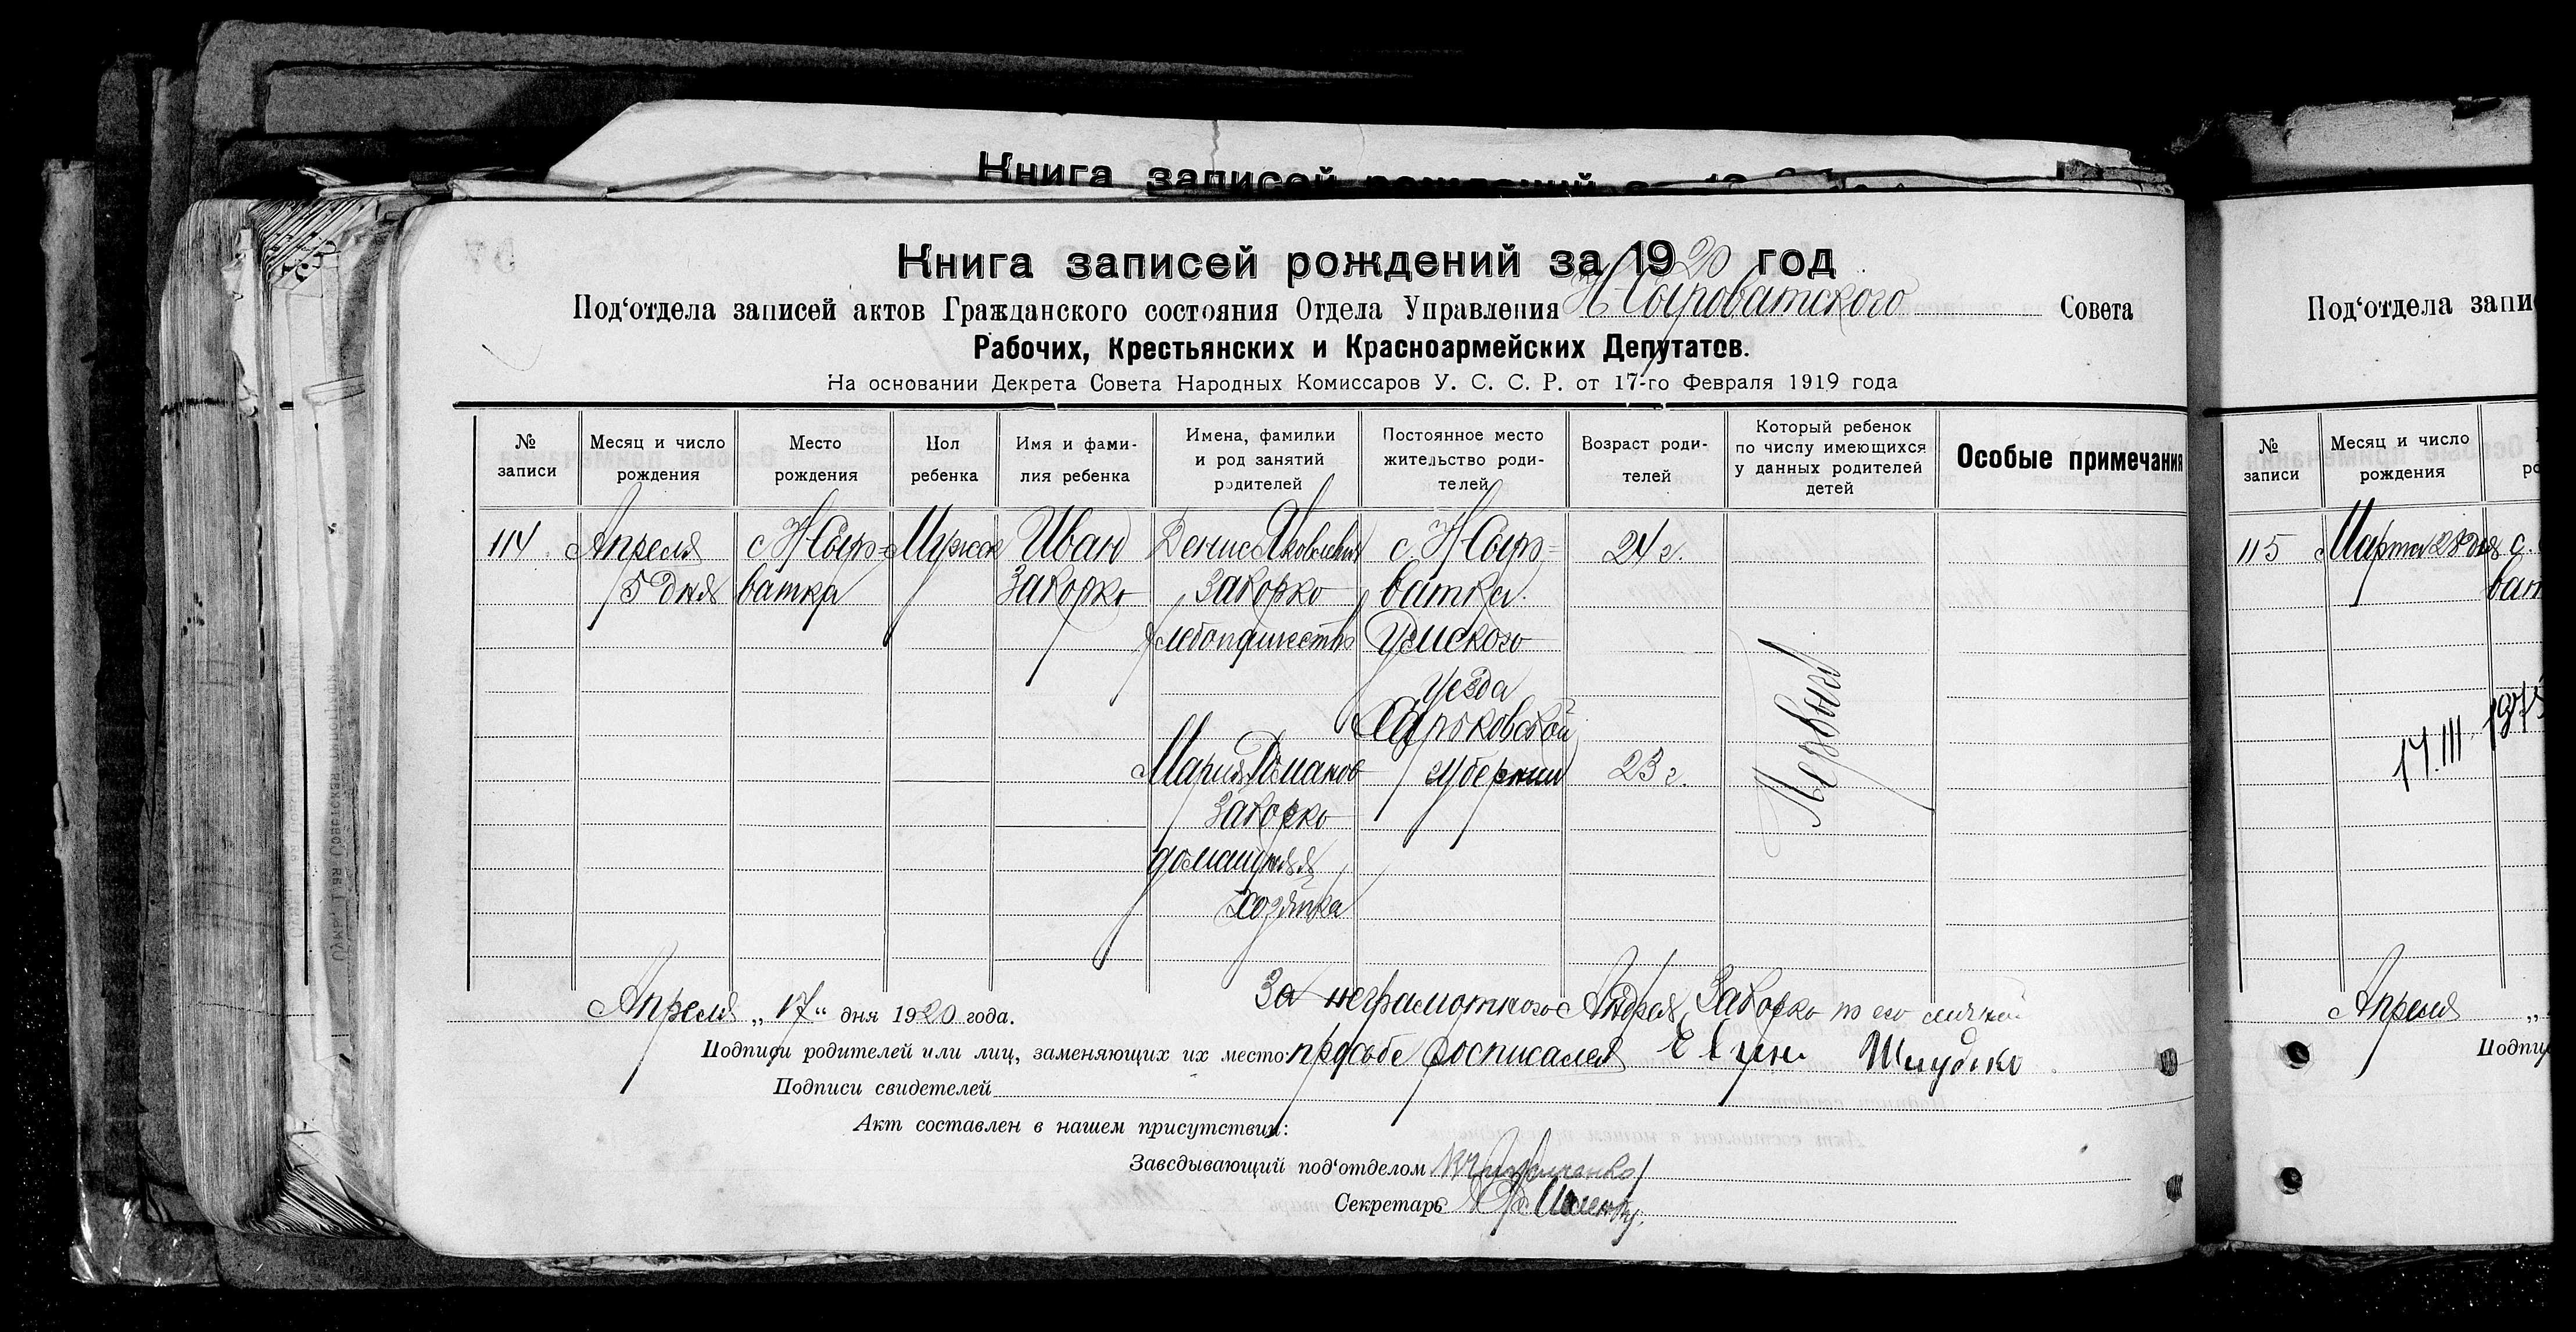 Книга записей рождений
Книга записей рождений за 1920 год
Под‘отдела записей актов Гражданского состояния Отдела Управления Н Сыроватского Совета
Рабочих, Крестьянских и Красноармейских Депутатов.
На основании Декрета Совета Народных Комиссаров У. С. С. Р. от 17-го Февраля 1919 года
№ записи
Месяц и число рождения
Место рождения
Пол ребенка
Имя и фами-
лия ребенка
Имена, фамилии
и род занятий
родителей
Постоянное место
жительство роди-
телей
Возраст роди-
телей
Который ребенок
по числу имеющихся
у данных родителей
детей
Особые примечания
114
Апреля
5 дня
с Н Сыр=
ватка
Мужск
Иван
Закорко
Денис Яковлевич
Закорко
хлебопашество
Мария Романов
Закорко
домашняя
хозяйка
с. Н Сыр=
ватка
Сумского
уезда
Харьковской
губернии
24 г.
23 г.
Первый
Апреля „17“ дня 1920 года.
За неграмотного Андрея Закорко по его личной
Подписи родителей или лиц, заменяющих их место: просьбе росписался
Подписи свидетелей
Акт составлен в нашем присутствии:
Заведывающий под‘отделом
Секретарь
Под‘отдела запи
№ записи
Месяц и число
рождения
115
Марта 28 дня
с.
ват
14.III
Апреля „
Подпи